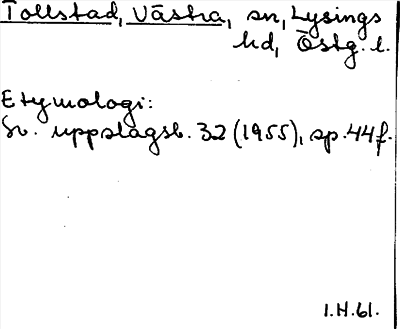 Tollstad, Västra, sn, Lysings
hd, Östg. l.
Etymologi:
Sv. uppslagsb. 32 (1955), sp. 44 f.
I.H.61.